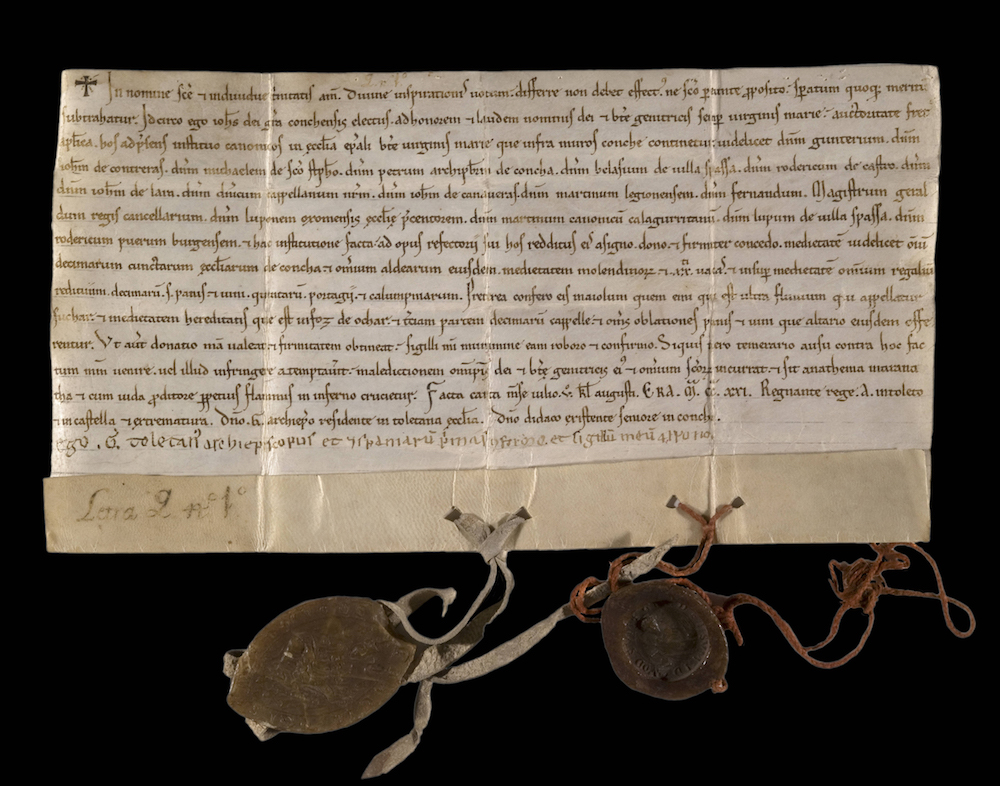 In nomine sce & individue trinitatis am. Divine inspirationis votum. differre non debet effectus. ne sco parante proposito. speratum quoque meritum
subtrahatur. Idcirco ego iohs dei gra conchensis electus. ad honorem & laudem nominis dei & bte genitricis semper virginis marie. auctoritate fret
aplica. hos ad presens instituo canonicos in ecclia epali bte virginis marie que infra muros conche continetur. videlicet dnm gunterum. dnm
iohm de contreras. dnm michaelem de sco stpho. dnm petrum archipbm de concha. dnm belasium de villa spassa. dnm rodericum de castro. dnm
dnm iohm de lara. dnm dnicum cappellanum nrm. dnm iohm de candveras. dnm martinum legionensem. dnm fernandum. Magistrum geral
dum regis cancellarium. dnm luponem oxomensis ecclie pcentorem. dnm martinum canonicum calagurritanum. dnm lupum de villa spassa. dnm
rodericum puerum burgensem. & hac institutione facta. ad opus refectorii sui hos redditus eis asigno. dono. & firmiter concedo. medietatem videlicet omium
decimarum cunctarum eccliarum de concha & omnium aldearum eiusdem. medietatem molendinorum & vacas. & insuper medietatem omnium regalium
redituum. decimarum. s. panis & vini. quintarum. portagii. & calumpniarum. Preterea confero eis maiolum quem emi qui est ultra fluvium qui appellatur
suchar. & medietatem hereditatis que est de ochar. & tciam partem decimarum cappelle. & oms oblationes panis & vini que altario eiusdem offe
rentur. Ut aut donatio mea valeat & firmitatem obtineat. sigilli mi munimine eam roboro & confirmo. Siquis vero temerario ausu contra hoc fac
tum mm venire. vel illud infringere atemptaverit. maledictionem omnipotentis dei & bte genitricis eius & omnium scorum incurrat. & sit anathema marana
tha & cum iuda proditore perpetuis flammis in inferno crucietur. Facta carta mse iulio. kl augusti. ERA. M. CC. XXI. Regnante rege. A. in toleto
& in castella & extrematura. Dno. G. archiepo residente in toletana ecclia. Dno didaco existente seniore in conche.
ego. G. toletanus archiepiscopus et ispaniarum primas et sigillum meum appono.
Letra Q nº 1º